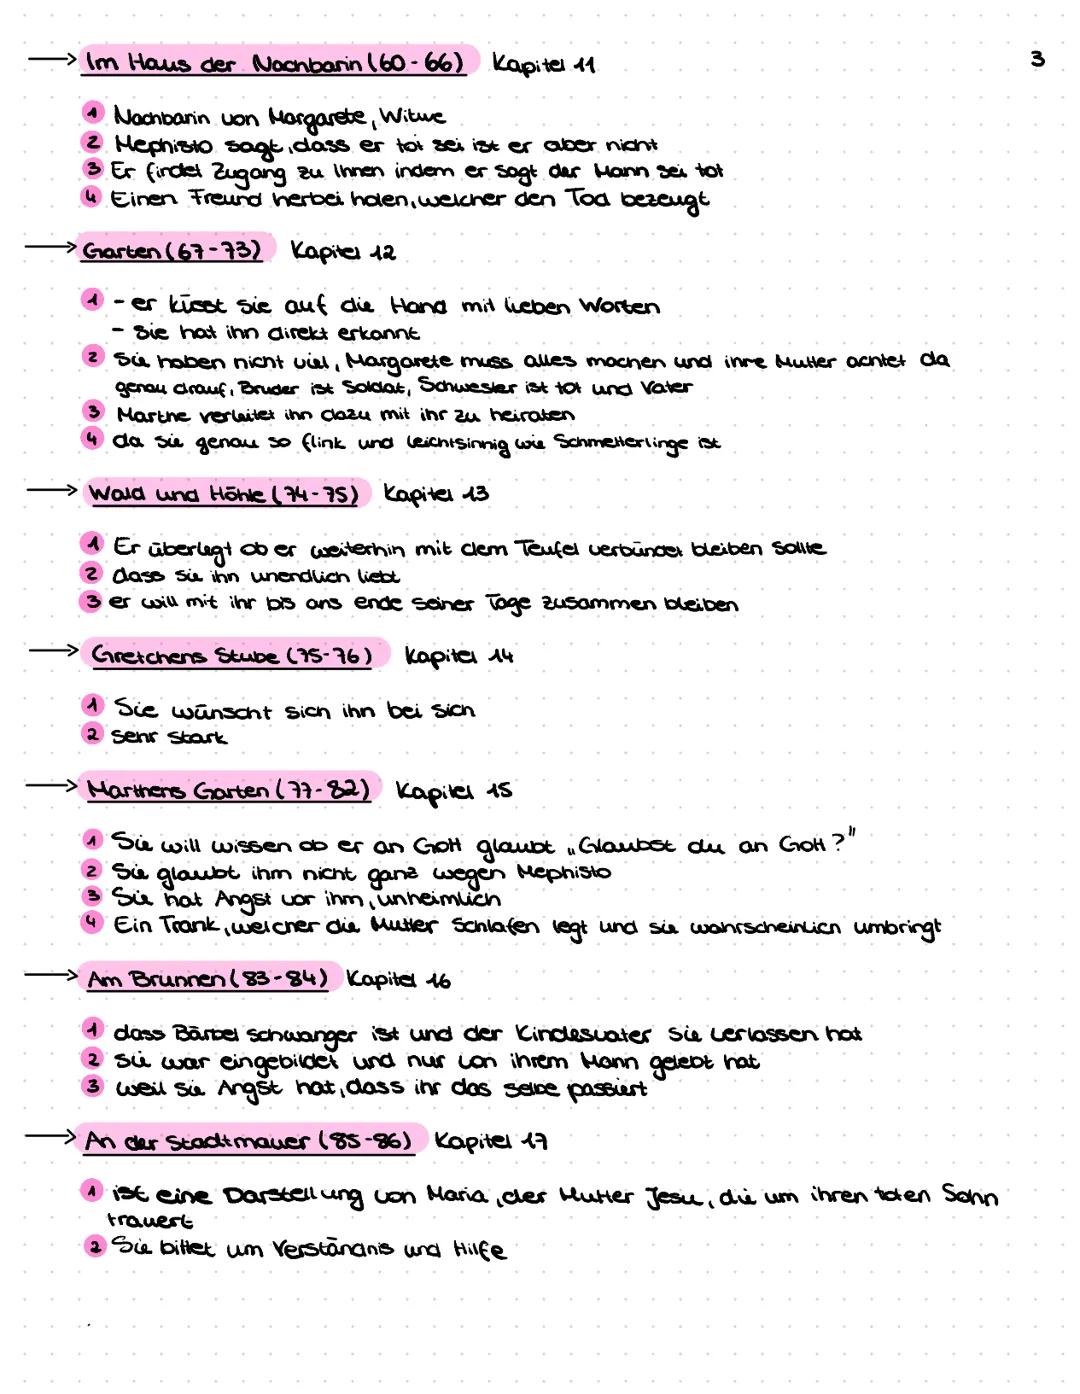 → Im Haus der Nachbarin (60-66) Kapitel 11 3
1 Nachbarin von Margarete, Witwe
2 Mephisto sagt, dass er tot sei ist er aber nicht
3 Er findet Zugang zu Ihnen indem er sagt der Mann sei tot
4 Einen Freund herbei holen, welcher den Tod bezeugt
→ Garten (67-73) Kapitel 12
1 - er küsst sie auf die Hand mit lieben Worten
- Sie hat ihn direkt erkannt
2 Sie haben nicht viel, Margarete muss alles machen und ihre Mutter achtet da
genau drauf, Bruder ist Soldat, Schwester ist tot und Vater
3 Marthe verleitet ihn dazu mit ihr zu heiraten
4 da sie genau so flink und leichtsinnig wie Schmetterlinge ist
→ Wald und Höhle (74-75) Kapitel 13
1 Er überlegt ob er weiterhin mit dem Teufel verbündet bleiben sollte
2 dass sie ihn unendlich liebt
3 er will mit ihr bis ans ende seiner Tage zusammen bleiben
→ Gretchens Stube (75-76) Kapitel 14
1 Sie wünscht sich ihn bei sich
2 sehr stark
→ Marthens Garten (77-82) Kapitel 15
1 Sie will wissen ob er an Gott glaubt „Glaubst du an Gott?"
2 Sie glaubt ihm nicht ganz wegen Mephisto
3 Sie hat Angst vor ihm, unheimlich
4 Ein Trank, welcher die Mutter Schlafen legt und sie wahrscheinlich umbringt
→ Am Brunnen (83-84) Kapitel 16
1 dass Bärbel schwanger ist und der Kindesvater sie verlassen hat
2 sie war eingebildet und nur von ihrem Mann gelebt hat
3 weil sie Angst hat, dass ihr das selbe passiert
→ An der Stadtmauer (85-86) Kapitel 17
1 ist eine Darstellung von Maria, der Mutter Jesu, die um ihren toten Sohn
trauert
2 Sie bittet um Verständnis und Hilfe